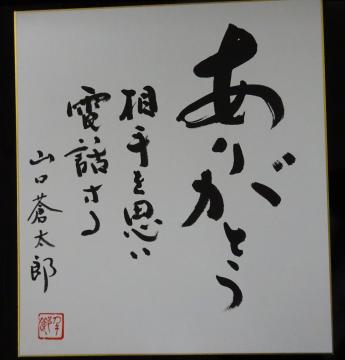 ありがとう
相手を思い
電話する
山口蒼太郎